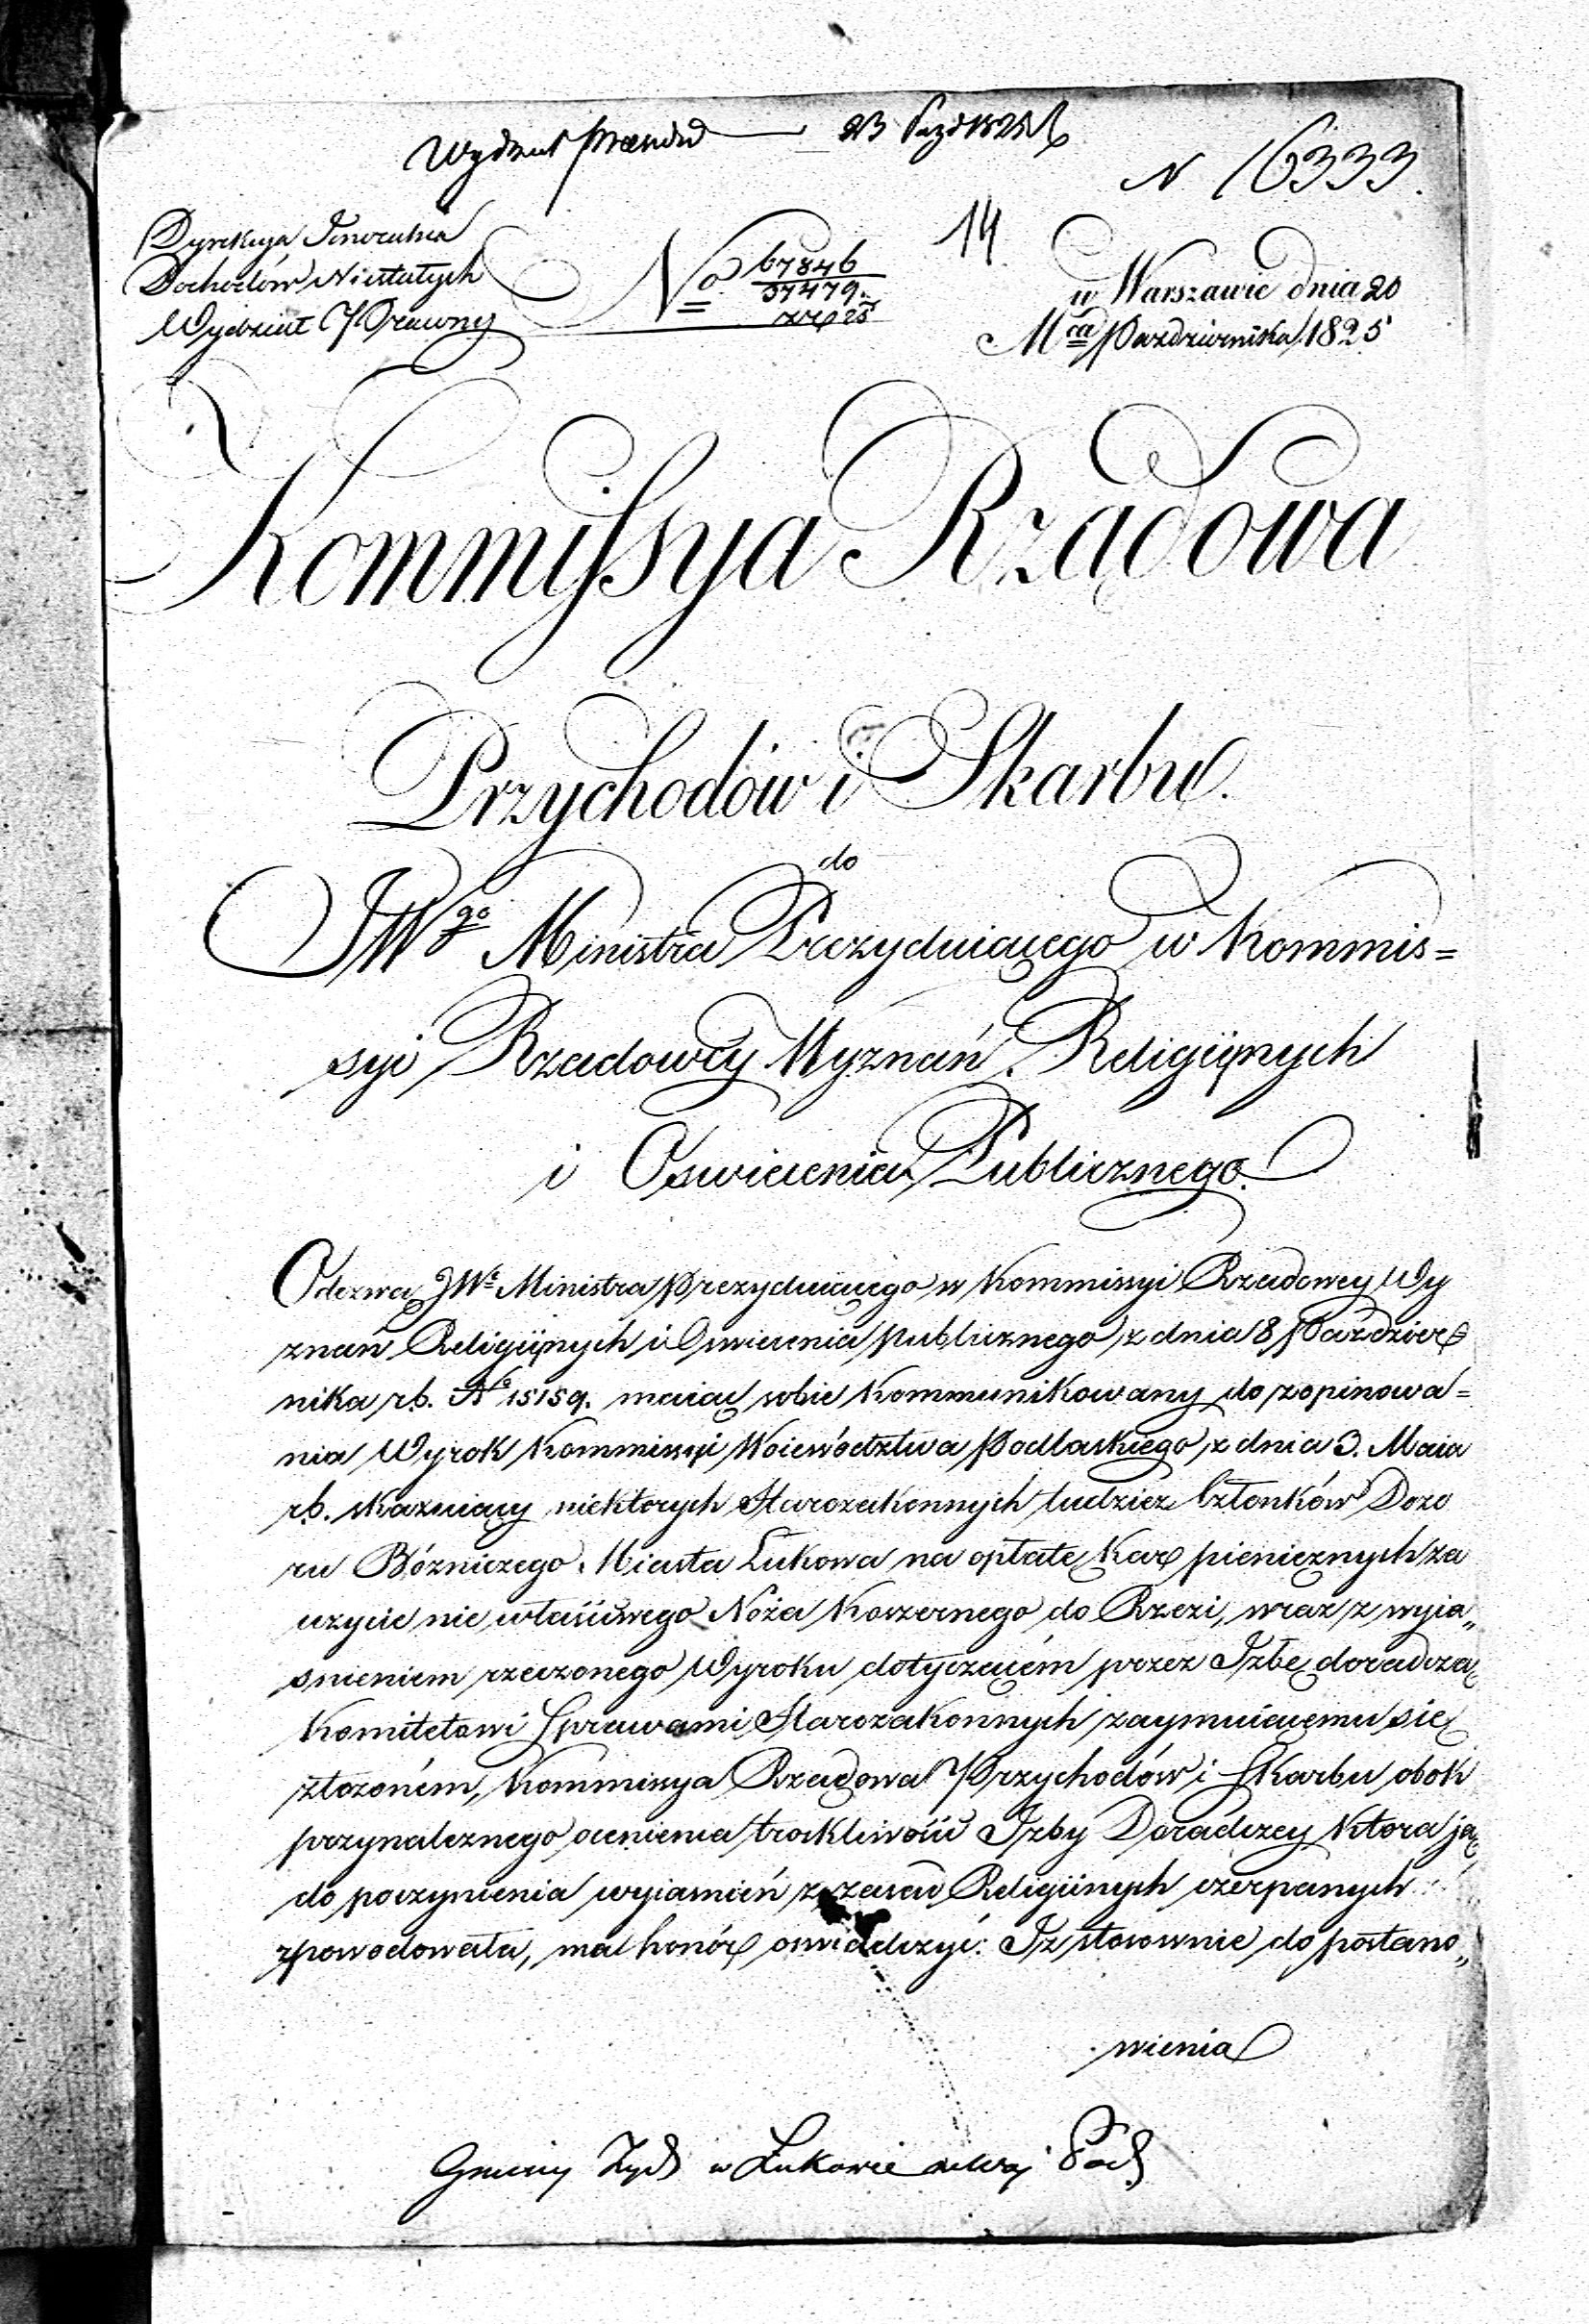 23 Paźd 1825
N 16333.
Dyrekcya Generalna
Dochodów Niestałych
Wydział Prawny
No 67846
37479.
14
w Warszawie dnia 20
Mca Pazdziernika 1825
Kommissya Rządowa
Przychodów i Skarbu.
do
JWgo Ministra Prezyduiącego w Kommis=
syi Rządowey Wyznań Religiynych
i Oswiecenia Publicznego.
Odezwą JWo Ministra Prezyduiącego w Kommissyi Rządowey Wy
znań Religiynych i Oswiecenia publicznego z dnia 8 Paździer
nika rb. No 15159. maiąc sobie Kommunikowany do zopinowa=
nia Wyrok Kommissyi Woiewództwa Podlaskiego z dnia 3. Maia
rb. skazuiący niektorych Starozakonnych tudzież Członków Dozo
ru Bóżniczego Miasta Łukowa na opłatę Kar pienieznych za
uzycie nie właściwego Noża Koszernego do Rzezi, wraz z wyia„
snieniem rzeczonego Wyroku dotyczącém przez Izbę doradczą
Komitetowi Sprawami Starozakonnych zaymuiącemu się
złożoném, Kommissya Rządowa Przychodów i Skarbu obok
przynależnego ocenienia troskliwości Izby Doradczey Ktora ją
do poczynienia wyiasnień z zasad Religiinych czerpanych
zpowodowała, ma honór oswiadczyć: Iż stosownie do postano„
wienia
Gminy Żyd w Łukowie